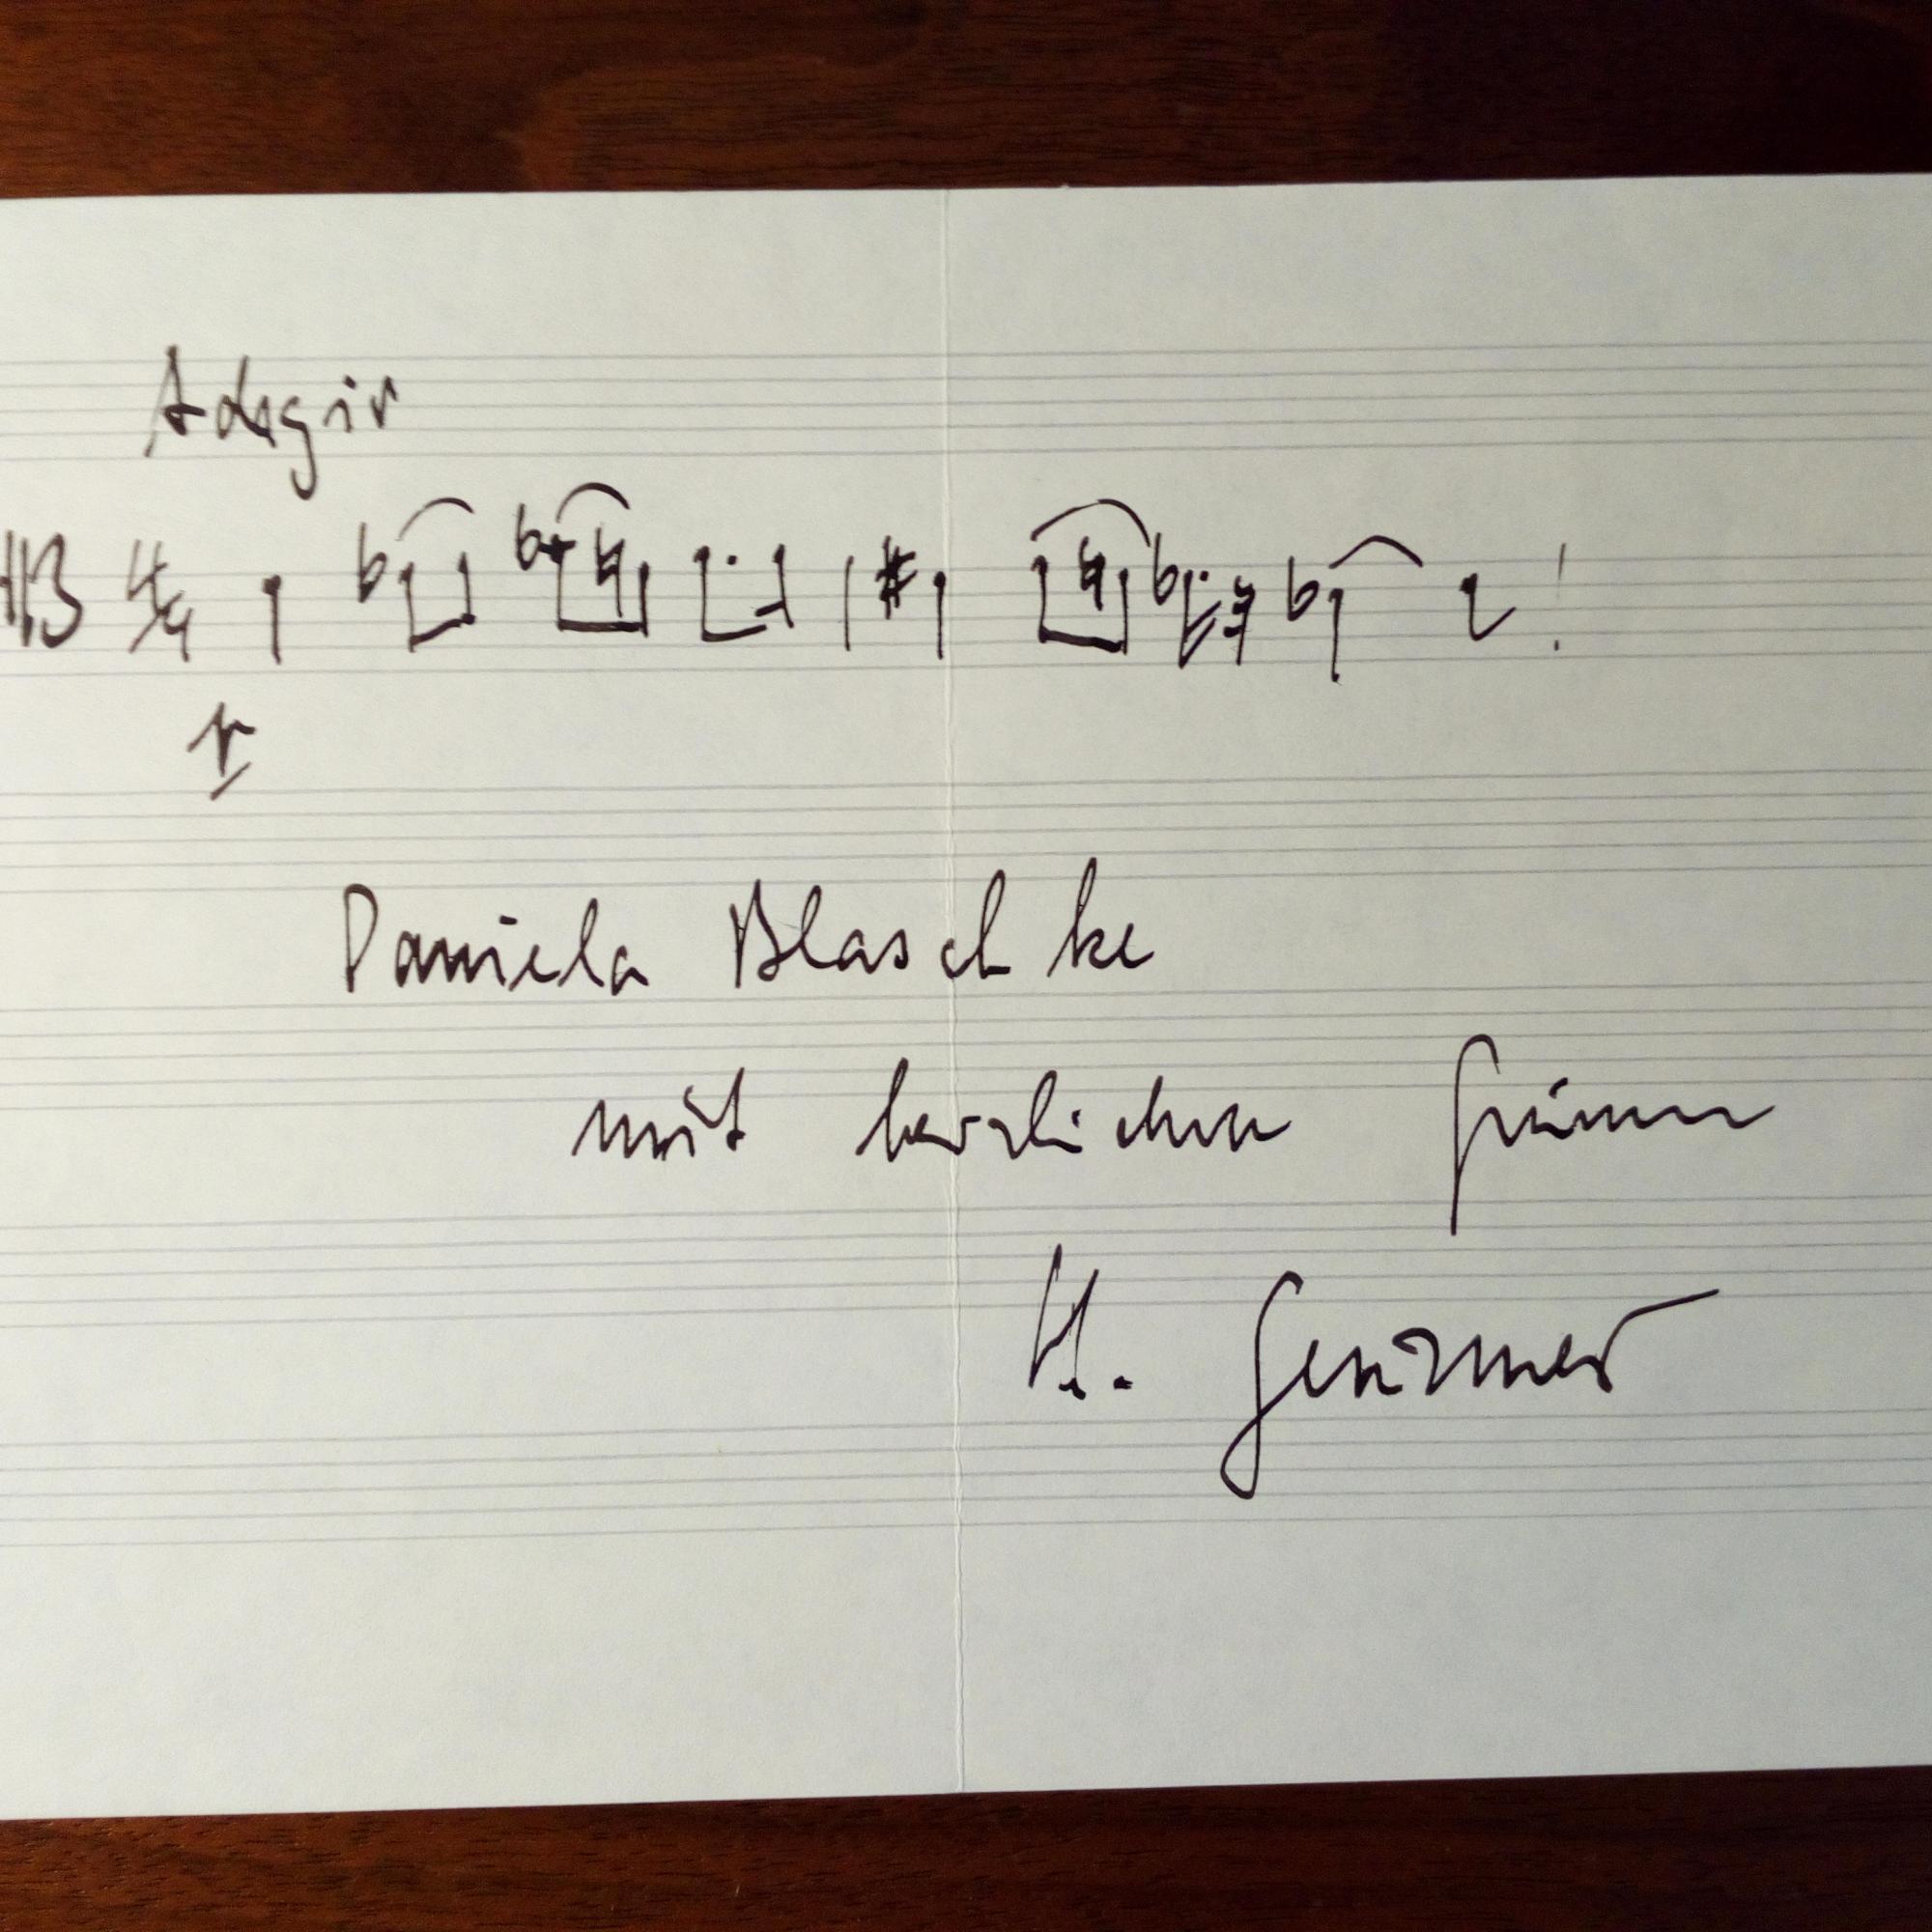 Adagio
4/4
p
Daniela Blaschke
mit herzlichen Grüssen
H. Genzmer